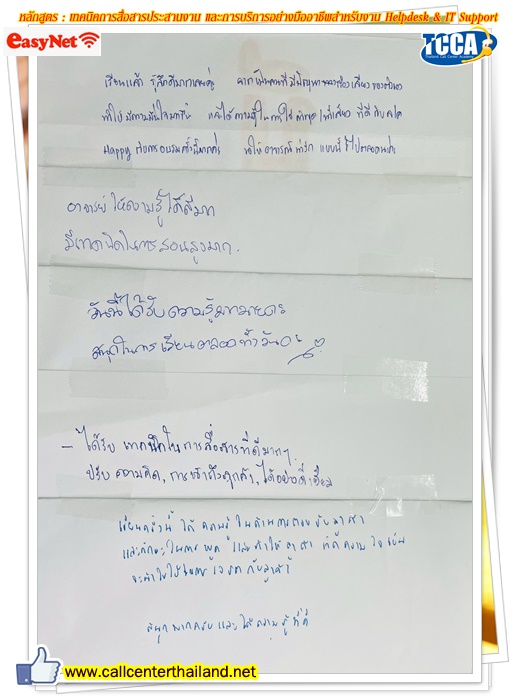 หลักสูตร : เทคนิคการสื่อสารประสานงาน และการบริการอย่างมืออาชีพสำหรับงาน Helpdesk & IT Support
EasyNet
TCCA
Thailand Call Center Academy
เรียนแล้ว รู้สึกดีมากเลยค่ะ
ทำให้มีความมั่นใจมากขึ้น และได้ความรู้ในการใช้คำพูด
Happy กับการอบรมครั้งนี้มากค่ะ ขอให้อาจารย์น่ารักแบบนี้ไปตลอดนะคะ
อาจารย์ ให้ความรู้ ได้ดีมาก
มีเทคนิคในการสอนสูงมาก.
วันนี้ได้รับความรู้มากมายค่ะ
สนุกในการเรียนตลอดทั้งวันค่ะ
- ได้รับ เทคนิคในการสื่อสารที่ดีมากๆ
ปรับ ความคิด, การเข้าถึงลูกค้า, ได้อย่างดีเยี่ยม
เรียนครั้งนี้ ได้ความรู้ในด้านการตอบรับลูกค้า
และทักษะในการพูด
สนุกมากครับ และได้ความรู้ที่ดี
www.callcenterthailand.net